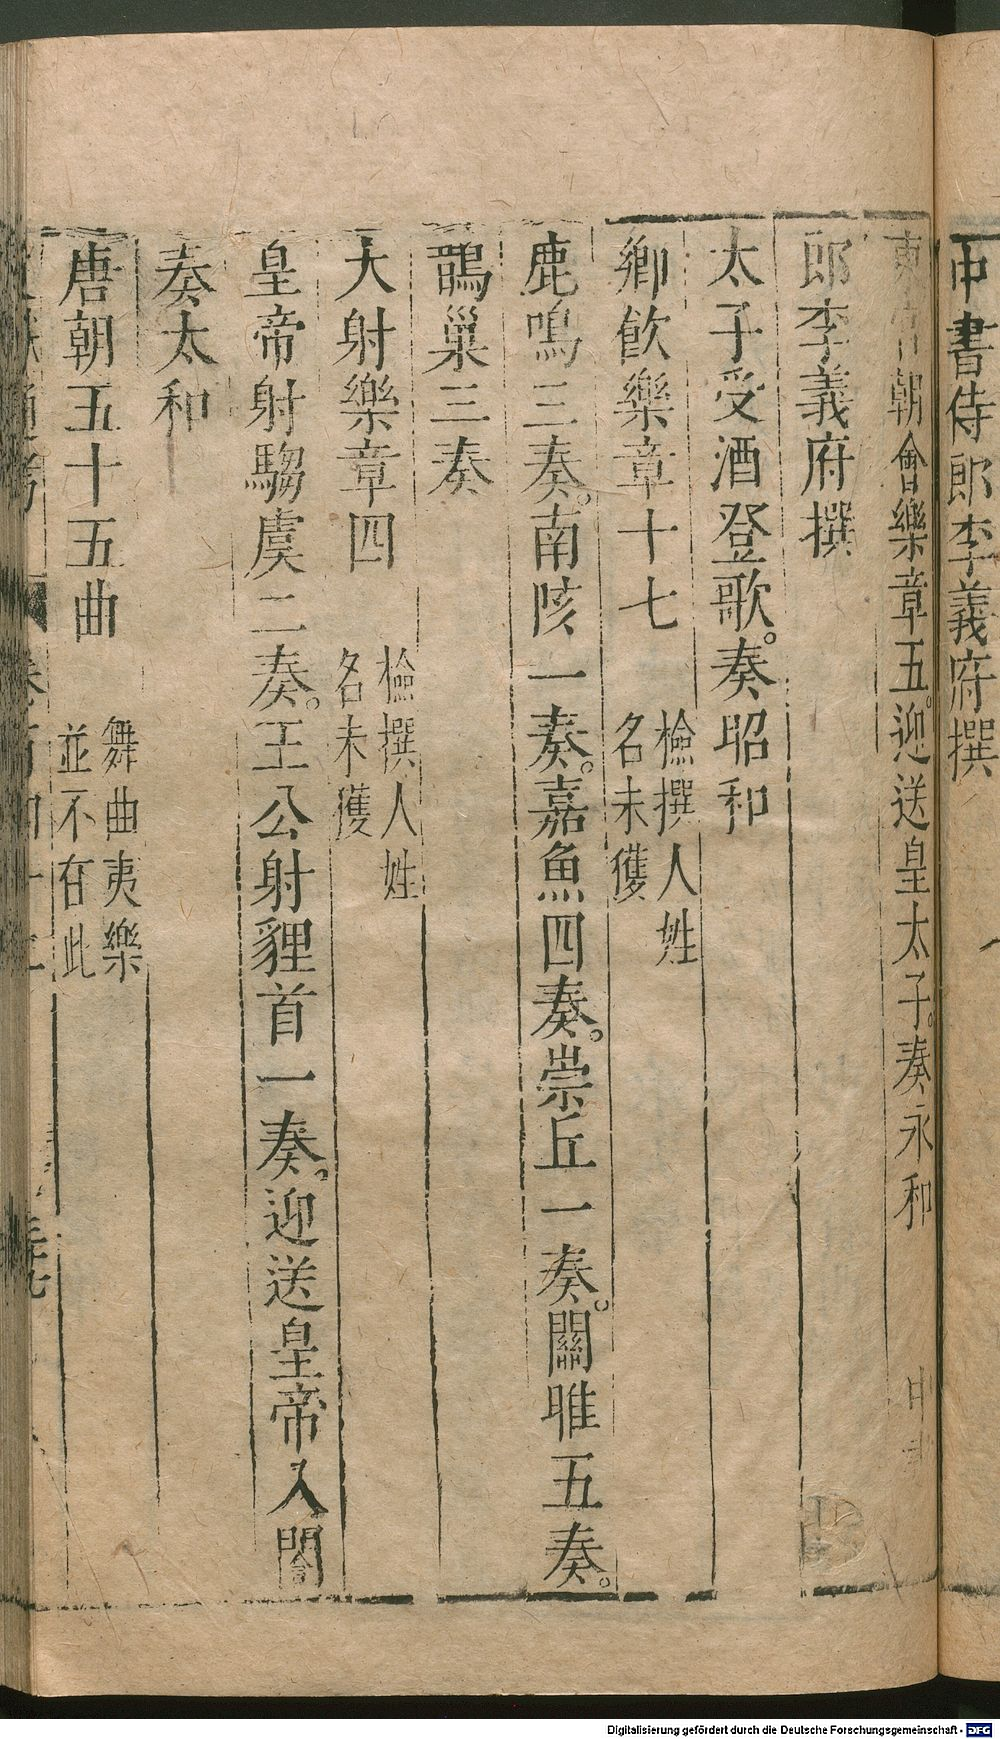 中書侍郎李義府撰
東宮朝會樂章五。迎送皇太子。奏永和 中書
郎李義府撰
太子受酒登歌。奏昭和
鄉飲樂章十七 檢撰人姓
名未獲
鹿鳴三奏。南陔一奏。嘉魚四奏。崇丘一奏。關雎五奏。
鵲巢三奏
大射樂章四 檢撰人姓
名未獲
皇帝射騶虞二奏。王公射貍首一奏。迎送皇帝入閤
奏太和
唐朝五十五曲 舞曲夷樂
並不在此
Digitalisierung gefördert durch die Deutsche Forschungsgemeinschaft - DFG